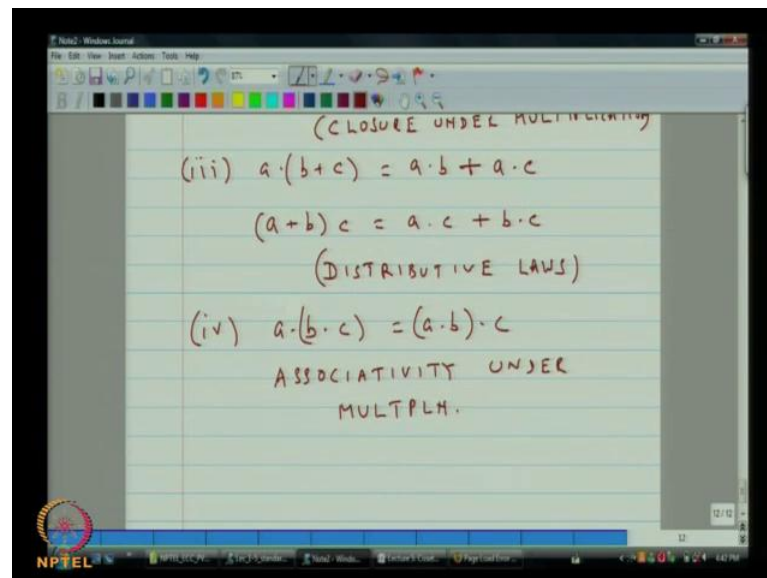 Note2 - Windows Journal
File Edit View Insert Actions Tools Help
(CLOSURE UNDER MULTIPLICATION)
(iii) a·(b+c) = a·b + a·c
(a+b) c = a.c + b.c
(DISTRIBUTIVE LAWS)
(iv) a·(b·c) = (a·b)·c
ASSOCIATIVITY UNDER
MULTPLN.
12/12
12
NPTEL
Note2 - Windo...
Page Load Error ...
4:42 PM